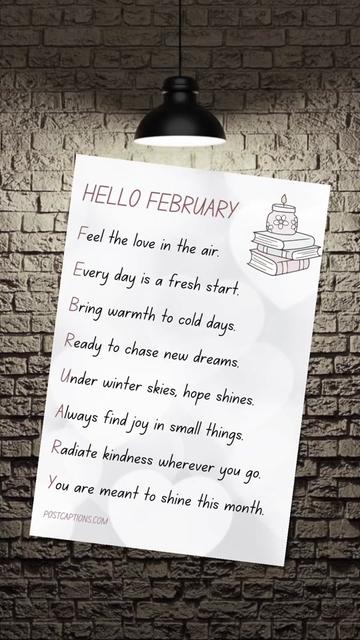 HELLO FEBRUARY
Feel the love in the air.
Every day is a fresh start.
Bring warmth to cold days.
Ready to chase new dreams.
Under winter skies, hope shines.
Always find joy in small things.
Radiate kindness wherever you go.
You are meant to shine this month.
POSTCAPTIONS.COM